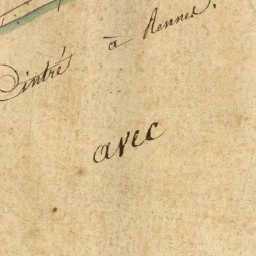 Cintré à Rennes.
avec